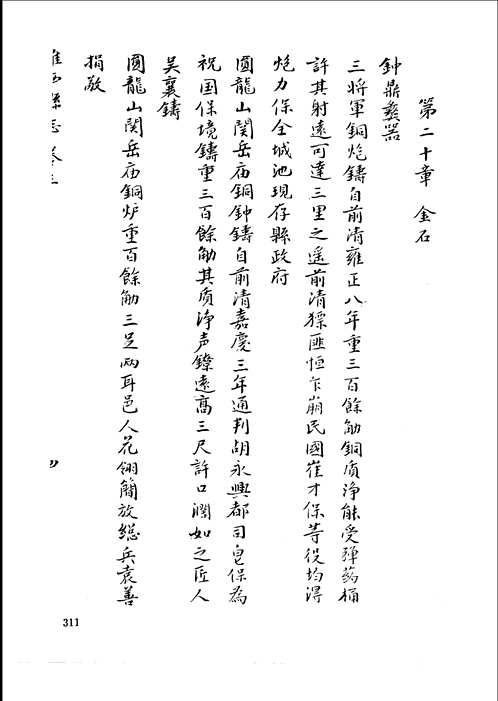 第二十章 金石
鈡鼎彝器
三將軍銅炮鑄自前清雍正八年重三百餘觔銅质净能受彈葯桶
許其射遠可達三里之遥前清猓匪恒乍崩民國崔才保等役均淂
炮力保全城池現存縣政府
圓龍山関岳庙銅鈡鑄自前清嘉慶三年通判胡永興都司皂保為
祝国保境鑄重三百餘觔其质净声鏦遠高三尺許口濶如之匠人
吴襄鑄
圓龍山関岳庙銅炉重百餘觔三足兩耳邑人花翎簡放総兵袁善
捐敬
維西縣志 卷三
311